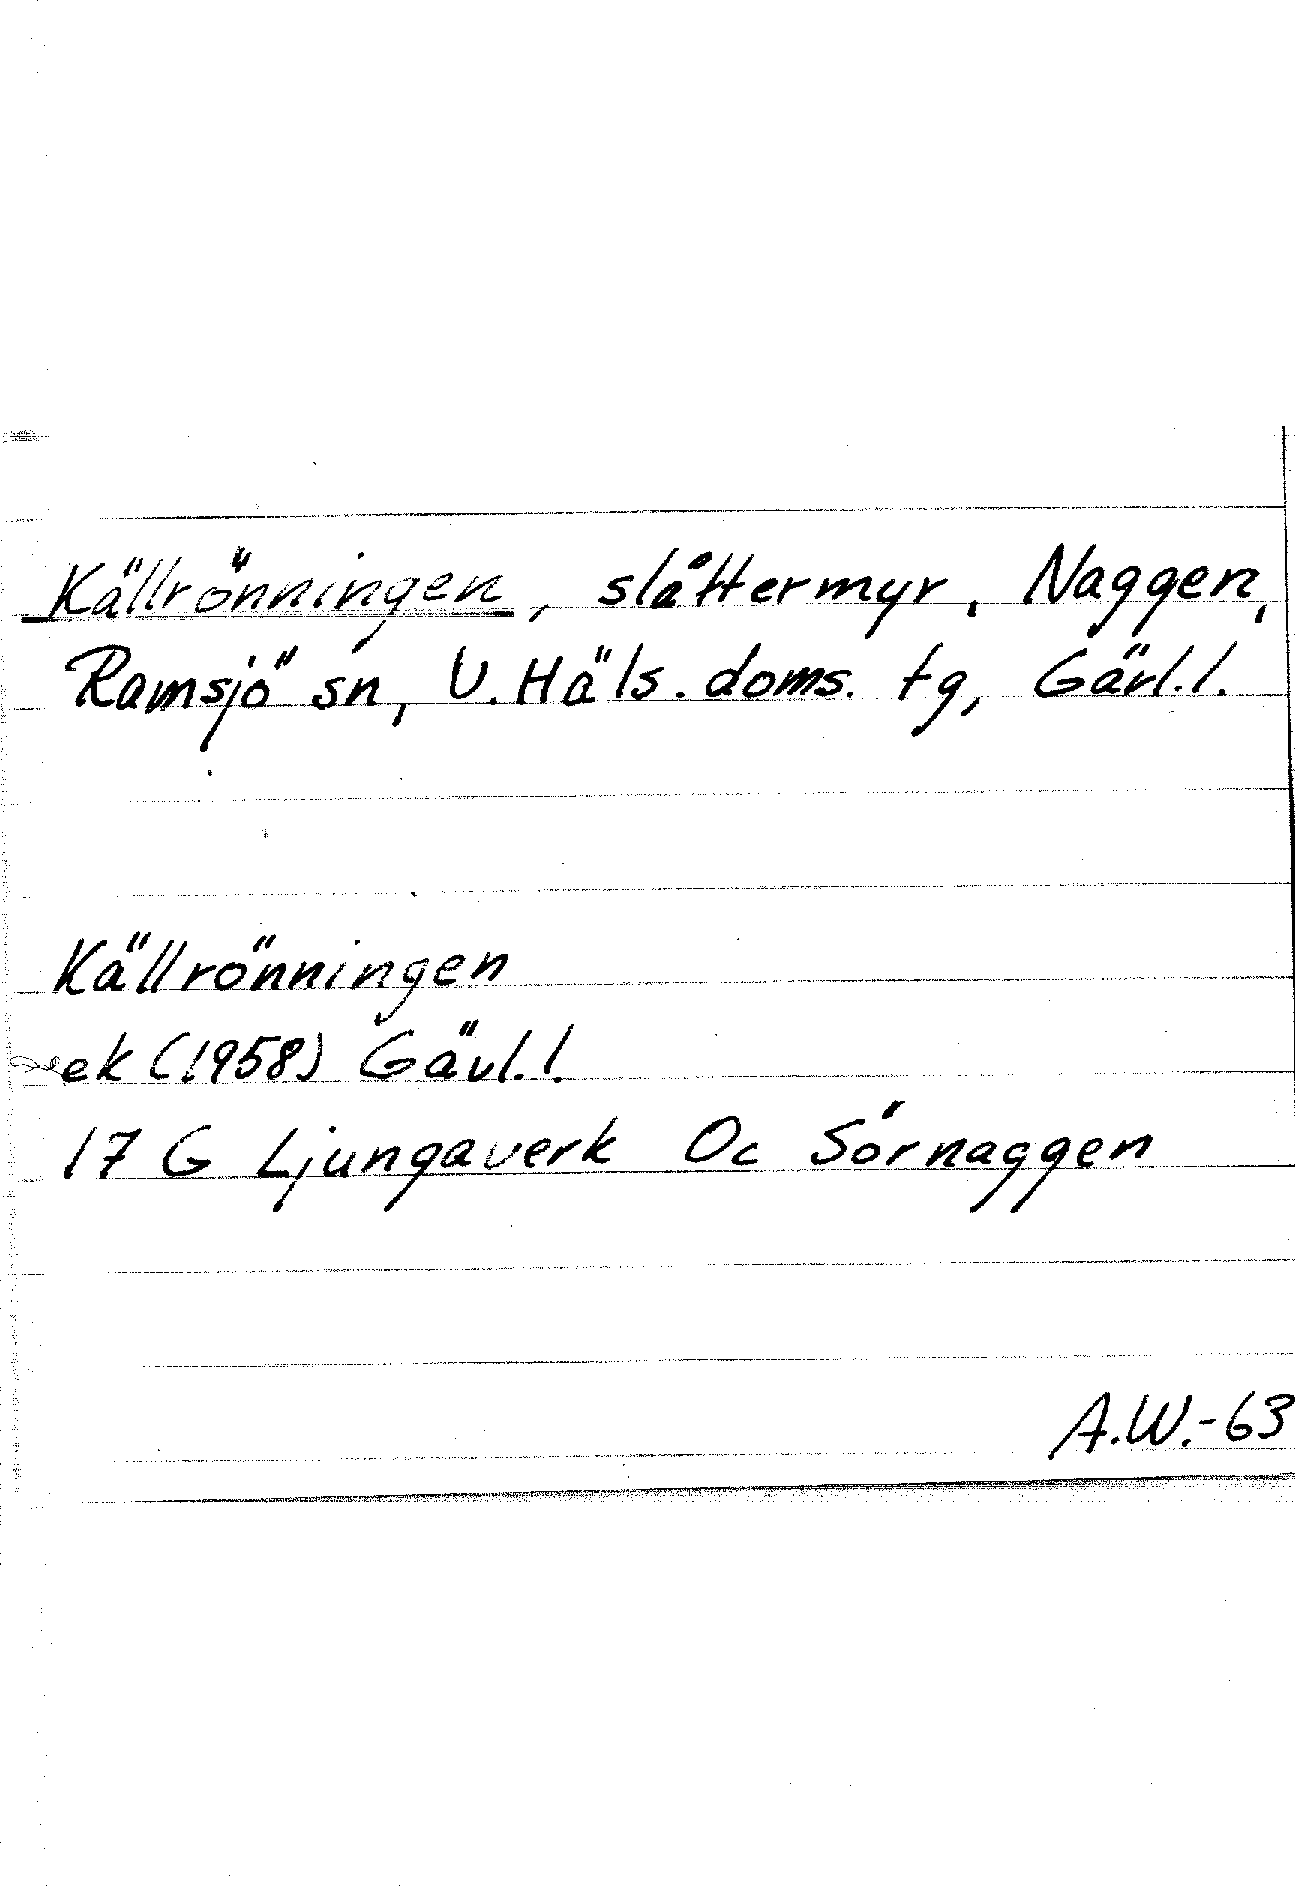 Källrönningen, slåttermyr, Naggen,
Ramsjö sn, V. Häls. doms. tg, Gävl.l.
Källrönningen
ek (1958) Gävl.l.
17 G Ljungaverk Oc Sörnaggen
A.W.-63